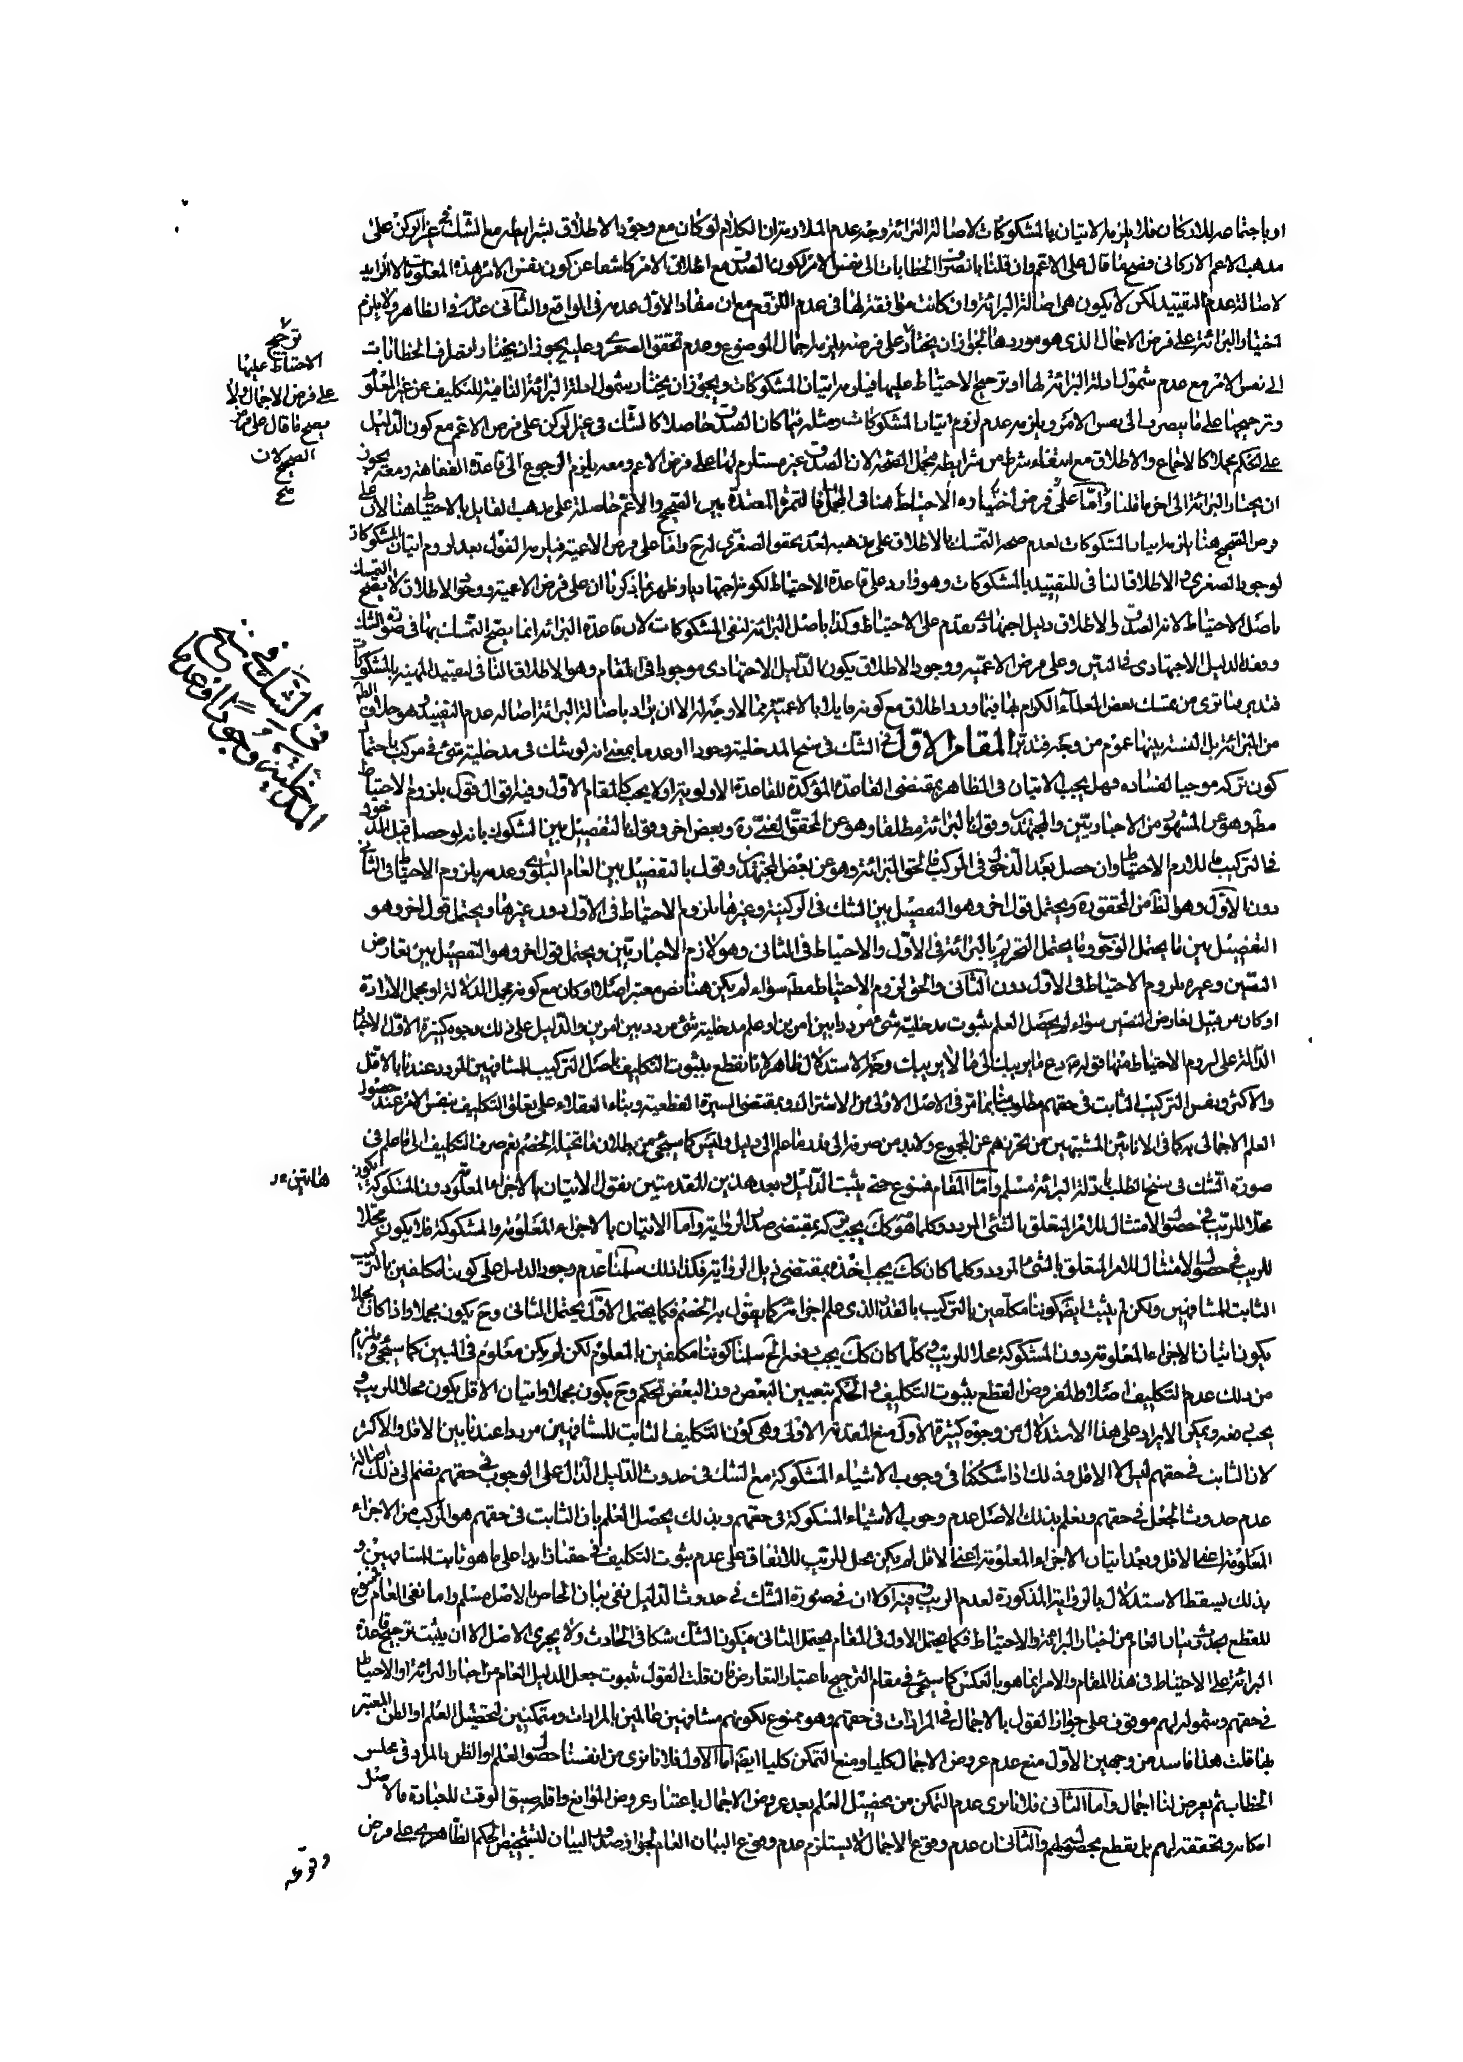 مذهب الاعم الاركانى فصح ما قال على الاعم وان قلنا بانصراف الخطابات الى نفس الامر لكون الصدق مع اطلاق الامر كاشفا عن كون نفس الامر هذه المعلومات لا ازيد
لاصالة عدم التقييد لكن لا يكون هى اصالة البرائة وان كانت موافقة لها فى عدم اللزوم مع ان مفاد الاول عدمه فى الواقع والثانى عدمه فى الظاهر ولا يلزم
اختيار البرائة على فرض الاجمال الذى هو موردها لجواز ان يختار على فرضه يلزمه اجمال الموضوع وعدم تحقق الصغرى وعليه يجوز ان يختار انصراف الخطابات
الى نفس الامر مع عدم شمول ادلة البرائة لها او ترجيح الاحتياط عليها فيلزمه اتيان المشكوكات ويجوز ان يختار شمول ادلة البرائة النافية للتكليف عن غير المعلوم
توجيح
الاحتياط عليها
على فرض الاجمال ولا
يصح ما قال على فرض
الصحيح لان
وترجيحها على ما ينصرف الى نفس الامر ويلزمه عدم لزوم اتيان المشكوكات ومثله فيما كان الصدق حاصلا كالشك فى غير الركن على فرض الاعم مع كون الدليل
على الحكم مجملا كالاجماع والاطلاق مع انتفاء شرط من شرايطه مجمل الصحة لان الصدق غير مستلزم لها على فرض الاعم ومعه يلزم الرجوع الى قاعدة الفقاهة ومعه يجوز
ان يختار البرائة الى اخر ما قلنا واما على فرض اختياره الاحتياط هنا فى الجملة فالثمرة المعتدة بين الصحيح والاعم حاصلة على مذهب القايل بالاحتياط هنا لان على
فرض الصحيح هنا يلزمه اتيان المشكوكات لعدم صحة التمسك بالاطلاق على مذهبه لعدم تحقق الصغرى له ح واما على فرض الاعمية فيلزمه القول بعدم لزوم اتيان المشكوكات
لوجود الصغرى والاطلاق النافى للتقييد بالمشكوكات وهو وارد على قاعدة الاحتياط لكونه اجتهاديا وظهر مما ذكرنا ان على فرض الاعمية ووجود الاطلاق لا يصح التمسك
باصل الاحتياط لان الصدق والاطلاق دليل اجتهادى يقدم على الاحتياط وكذا باصل البرائة لنفى المشكوكات لان قاعدة البرائة انما يصح التمسك بها فى صورة الشك
وفقد الدليل الاجتهادى فى البين وعلى فرض الاعمية ووجود الاطلاق يكون الدليل الاجتهادى موجودا فى المقام وهو الاطلاق النافى لتقييد المهية بالمشكوكات
فتدبر فما ترى من تمسك بعض العلماء الكرام بها فيما ورد اطلاق مع كونه قايلا بالاعمية مما لا وجه له الا ان يراد باصالة البرائة اصالة عدم التقييد وهو خلاف الظ
من البرائة بل النسبة بينهما عموم من وجه فتدبر المقام الاول فى الشك فى سنخ المدخلية وجودا او عدما بمعنى انه لو شك فى مدخلية شئ فى مركب باحتمال
فى الشك فى سنخ
المدخلية وجودا وعدما
كون تركه موجبا لفساده فهل يجب الاتيان فى الظاهر بمقتضى القاعدة المؤكدة للقاعدة الاولوية او لا يجب كالمقام الاول وفيه اقوال فقول بلزوم الاحتياط
مط وهو عن المشهور من الاخباريين والمجتهدين وقول بالبرائة مطلقا وهو عن المحقق القمى ره وبعض اخر وقول بالتفصيل بين الشكوك بانه لو حصل قبل الدخول
فى التركيب فاللازم الاحتياط وان حصل بعد الدخول فى المركب فالحق البرائة وهو عن بعض المجتهدين وقول بالتفصيل بين العام البلوى وعدمه بلزوم الاحتياط فى الثانى
دون الاول وهو الظ من المحقق ره ويحتمل قول اخر وهو التفصيل بين الشك فى الركنية وغيرها بلزوم الاحتياط فى الاول دون غيرها ويحتمل قول اخر وهو
التفصيل بين ما يحتمل الوجوب وما يحتمل التحريم بالبرائة فى الاول والاحتياط فى الثانى وهو لازم الاخباريين ويحتمل قول اخر وهو التفصيل بين تعارض
النصين وغيره بلزوم الاحتياط فى الاول دون الثانى والحق لزوم الاحتياط مط سواء لم يكن هنا نص معتبر اصلا او كان مع كونه مجمل الدلالة او مجمل الارادة
او كان من قبيل تعارض النصين سواء لم يحصل العلم بثبوت مدخلية شئ مرددا بين امرين او علم مدخلية شئ مردد بين امرين والدليل على ذلك وجوه كثيرة الاول الاخبار
الدالة على لزوم الاحتياط منها قوله ع دع ما يريبك الى ما لا يريبك وجه الاستدلال ظاهر لانا نقطع بثبوت التكليف باصل التركيب للمشافهين المردد عندنا بالاقل
والاكثر ونفس التركيب الثابت فى حقهم مطلوب منا بما مر فى الاصل الاولى من الاشتراك وبمقتضى السيرة القطعية وبناء العقلاء على تعلق التكليف بنفس الامر عند حصول
العلم الاجمالى به كما فى الانائين المشتبهين من تحرزهم عن المجموع ولا بد من صرفه الى قدر ما علم الى دليل وليس كما سيجئ من بطلان ما تخيله الخصم نعم صرف التكليف الى ما علم فى
صورة الشك فى سنخ الطلب بادلة البرائة مسلم واما المقام فممنوع حتى يثبت الدليل وبعد هذين المقدمتين نقول الاتيان بالاجزاء المعلومة دون المشكوكة يكون
هاتين
محلا للريب فى حصول الامتثال للامر المتعلق بالشئ المردد وكلما هو كك يجب تركه بمقتضى صدر الرواية واما الاتيان بالاجزاء المعلومة والمشكوكة فلا يكون محلا
للريب فى حصول الامتثال للامر المتعلق بالشئ المردد وكلما كان كك يجب اخذه بمقتضى ذيل الرواية فكذا لك سلمنا عدم وجود الدليل على كوننا مكلفين بالتركيب
الثابت للمشافهين ولكن لم يثبت ايضا كوننا مكلفين بالتركيب بالقدر الذى علم اجزائه كما يقول به الخصم فكما يحتمل الاول يحتمل الثانى وح يكون مجملا واذا كان مجملا
يكون اتيان الاجزاء المعلومة دون المشكوكة محلا للريب وكلما كان كك يجب دفعه الخ سلمنا كوننا مكلفين بالمعلوم لكن لم يكن معلوم فى البين كما سيجئ ويلزم
من ذلك عدم التكليف اصلا والمفروض القطع بثبوت التكليف والحكم بتعيين البعض دون البعض تحكم وح يكون مجملا واتيان الاقل يكون محلا للريب و
يجب دفعه ويمكن الايراد على هذا الاستدلال من وجوه كثيرة الاول منع المقدمة الاولى وهى كون التكليف الثابت للمشافهين مرددا عندنا بين الاقل والاكثر
لان الثابت فى حقهم ليس الا الاقل وذلك اذا شككنا فى وجوب الاشياء المشكوكة مع الشك فى حدوث الدليل الدال على الوجوب فى حقهم بضم الى ذلك اصالة
عدم حدوث الجعل فى حقهم ونعلم بذلك الاصل عدم وجوب الاشياء المشكوكة فى حقهم وبذلك يحصل العلم بان الثابت فى حقهم هو المركب من الاجزاء
المعلومة اعنى الاقل وبعد اتيان الاجزاء المعلومة اعنى الاقل لم يكن محل للريب للاتفاق على عدم ثبوت التكليف فى حقنا زايدا على ما هو ثابت للمشافهين و
بذلك يسقط الاستدلال بالرواية المذكورة لعدم الريب وفيه اولا ان فى صورة الشك فى حدوث الدليل نفى بيان الخاص بالاصل مسلم واما نفى العام فممنوع
للقطع بحدوث بيان العام من اخبار البرائة والاحتياط فكما يحتمل الاول فى المقام يحتمل الثانى فيكون الشك شكا فى الحادث ولا يجرى الاصل الا ان يثبت ترجيح قاعدة
البرائة على الاحتياط فى هذا المقام والامر انما هو بالعكس كما سيجئ فى مقام الترجيح باعتبار التعارض فان قلت القول بثبوت جعل الدليل العام من اخبار البرائة او الاحتياط
فى حقهم وشموله لهم موقوف على جواز القول بالاجمال فى المرادات فى حقهم وهو ممنوع لكونهم مشافهين عالمين بالمرادات ومتمكنين لتحصيل العلم او الظن المعتبر
بها قلت هذا فاسد من وجهين الاول منع عدم عروض الاجمال كليا ومنع التمكن كليا ايضا اما الاول فلانا نرى من انفسنا حصول العلم او الظن بالمراد فى مجلس
الخطاب ثم يعرض لنا اجمال واما الثانى فلانا نرى عدم التمكن من تحصيل العلم بعد عروض الاجمال باعتبار عروض الموانع واقله ضيق الوقت للعبادة فالاصل
امكانه وتحققه لهم بل يقطع بحصوله لهم والثانى ان عدم وقوع الاجمال لا يستلزم عدم وقوع البيان العام لجواز صدور البيان لتشخيص الحكم الظاهرى على فرض
وقوعه